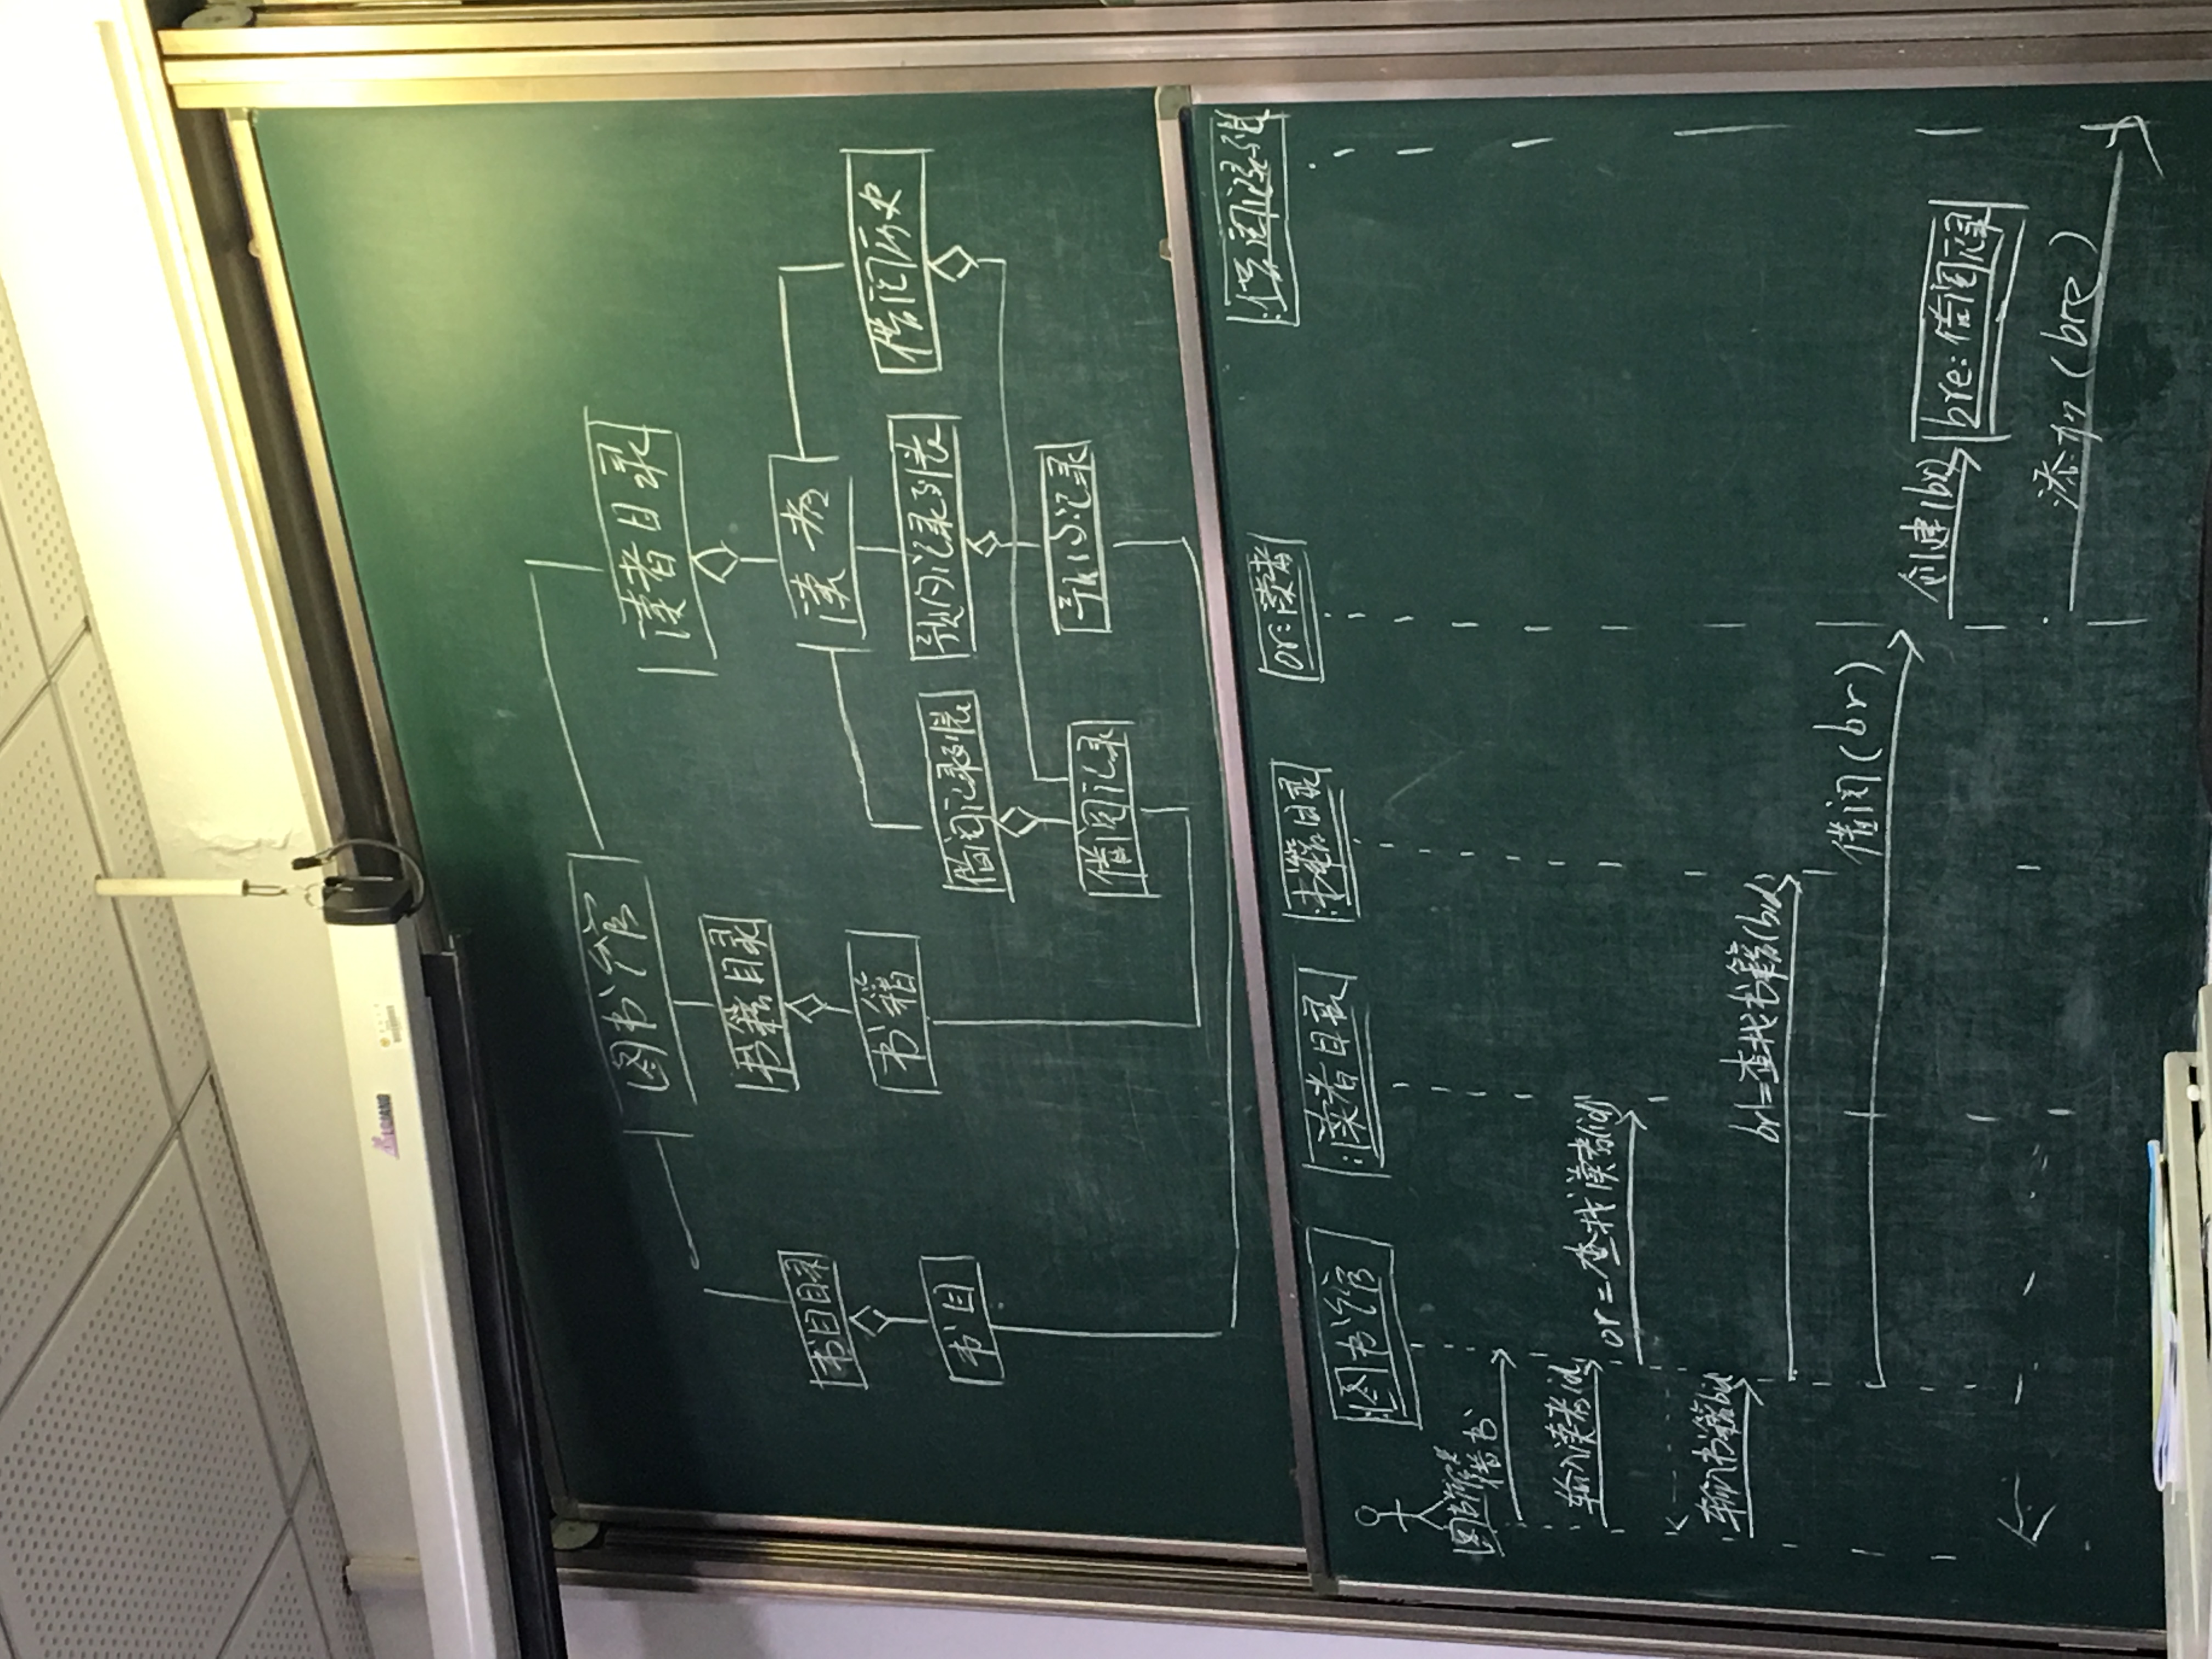 LIJIANG
图书馆
读者目录
书籍目录
书目目录
读者
书籍
借阅历史
书目
借阅记录列表
预约记录列表
借阅记录
预约记录
:图书馆
:读者目录
:书籍目录
or:读者
:借阅记录列表
图书管理员
借书
输入读者id
or=查找读者(id)
输入书籍bid
br=查找书籍(bid)
借阅(br)
创建(br)
bre:借阅记录
添加(bre)